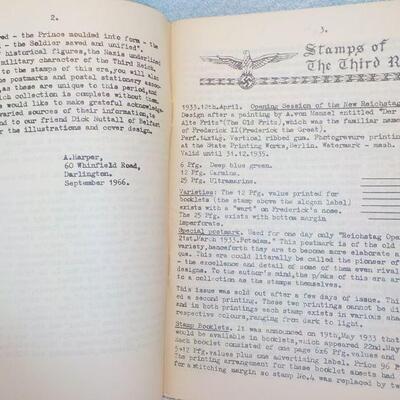 2.
ved - the Prince moulded into form - the
g - the Soldier saved and unified".
r historical figures, the Nazis underlined
military character of the Third Reich.
to the stamps of this era, you will also
e postmarks and postal stationery assoc-
, as these are unique to this period, and
ich collection is complete without them.
s would like to make grateful acknowledge-
varied sources of their information, to
nd to our friend Dick Nuttall of Belfast
r the illustrations and cover design.
A.Harper,
60 Whinfield Road,
Darlington.
September 1966.
3.
Stamps of
The Third R
1933.12th.April. Opening Session of the New Reichstag
Design after a painting by A.von Menzel entitled "Der
Alte Fritz"(The Old Fritz), which was the familiar name
of Frederick II(Frederick the Great).
Perf.14x14¼. Vertical ribbed gum. Photogravure printing
at the State Printing Works, Berlin. Watermark - mash.
Valid until 31.12.1935.
6 Pfg. Deep blue green.
12 Pfg. Carmine.
25 Pfg. Ultramarine.
Varieties: The 12 Pfg value printed for
booklets (the stamp above the slogan label)
exists with a "wart" on Frederick's nose.
The 25 Pfg. exists with bottom margin
imperforate.
Special postmark. Used for one day only "Reichstag Ope
21st.March 1933.Potsdam." This postmark is of the old
variety, henceforth they are to become more elaborate a
que. This era could literally be called the pioneer of
- the excellence and detail of some of them even rival
designs. To the author's mind, the p/mks of this era ar
to a collection as the stamps themselves.
This issue was sold out after a few days of issue. Thi
ed a second printing. These two printings cannot be di
and in both printings each stamp exists in various shad
respective colours, ranging from dark to light.
Stamp Booklets. It was announced on 19th,May 1933 that
would be available in booklets, which appeared 22nd.May
Each booklet consisted of one page 6x6 Pfg.values and
5x12 Pfg.values plus one advertising label. Price 96 Pf
The printing arrangement for these booklet sheets had
for a stitching margin so stamp No.4 was replaced by tw